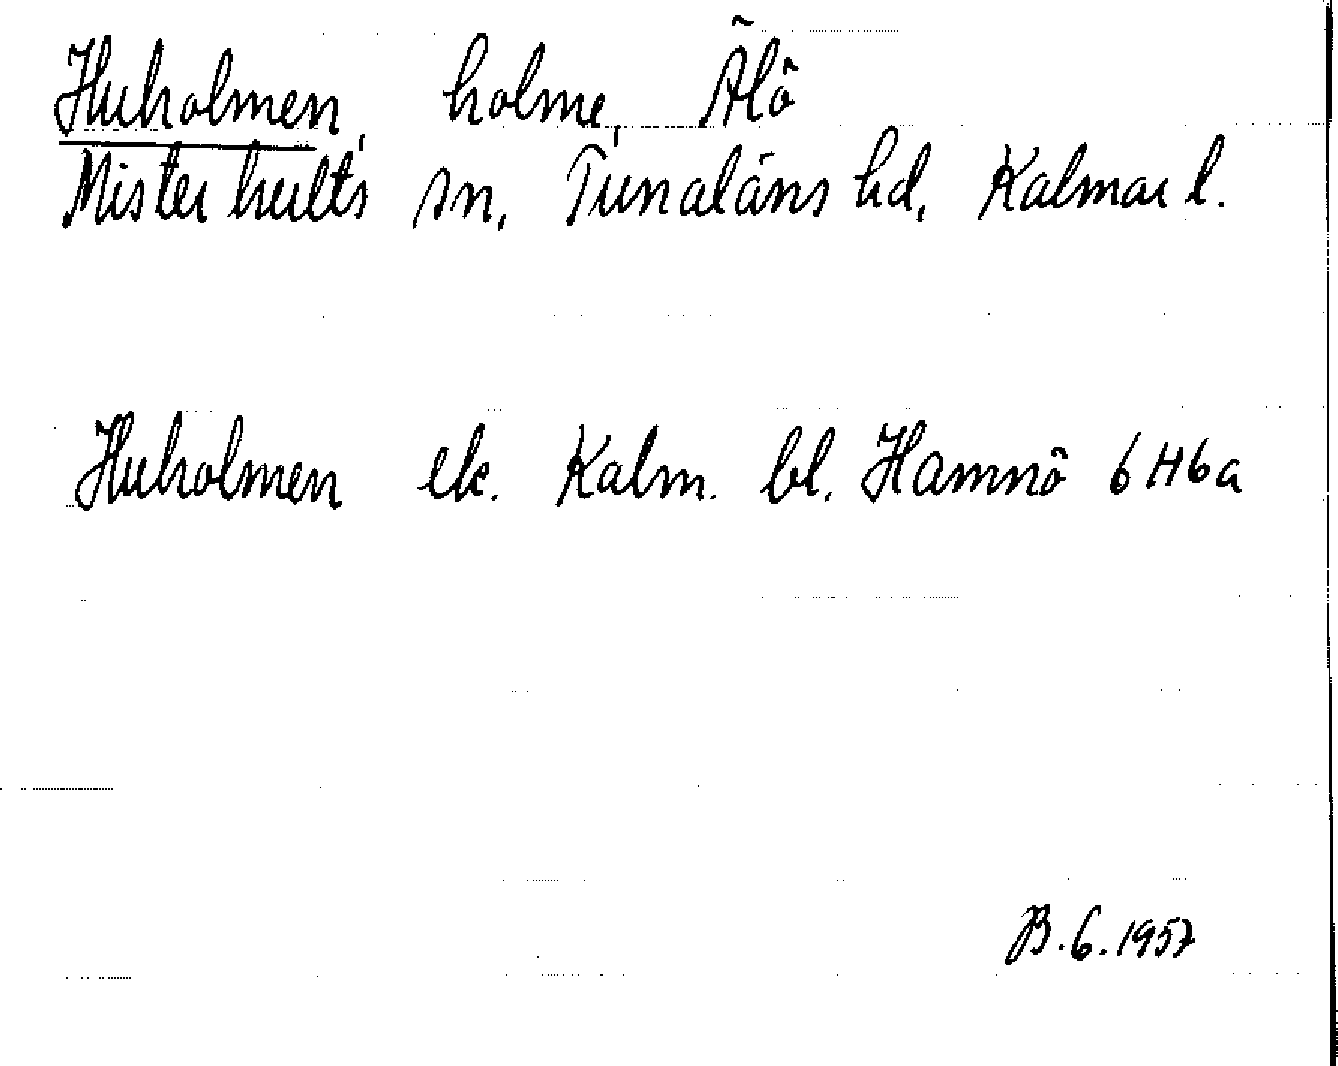 Huholmen, holme, Älö
Misterhults sn, Tunaläns hd, Kalmar l.
Huholmen ek. Kalm. bl. Hamnö 6H6a
B.G. 1957